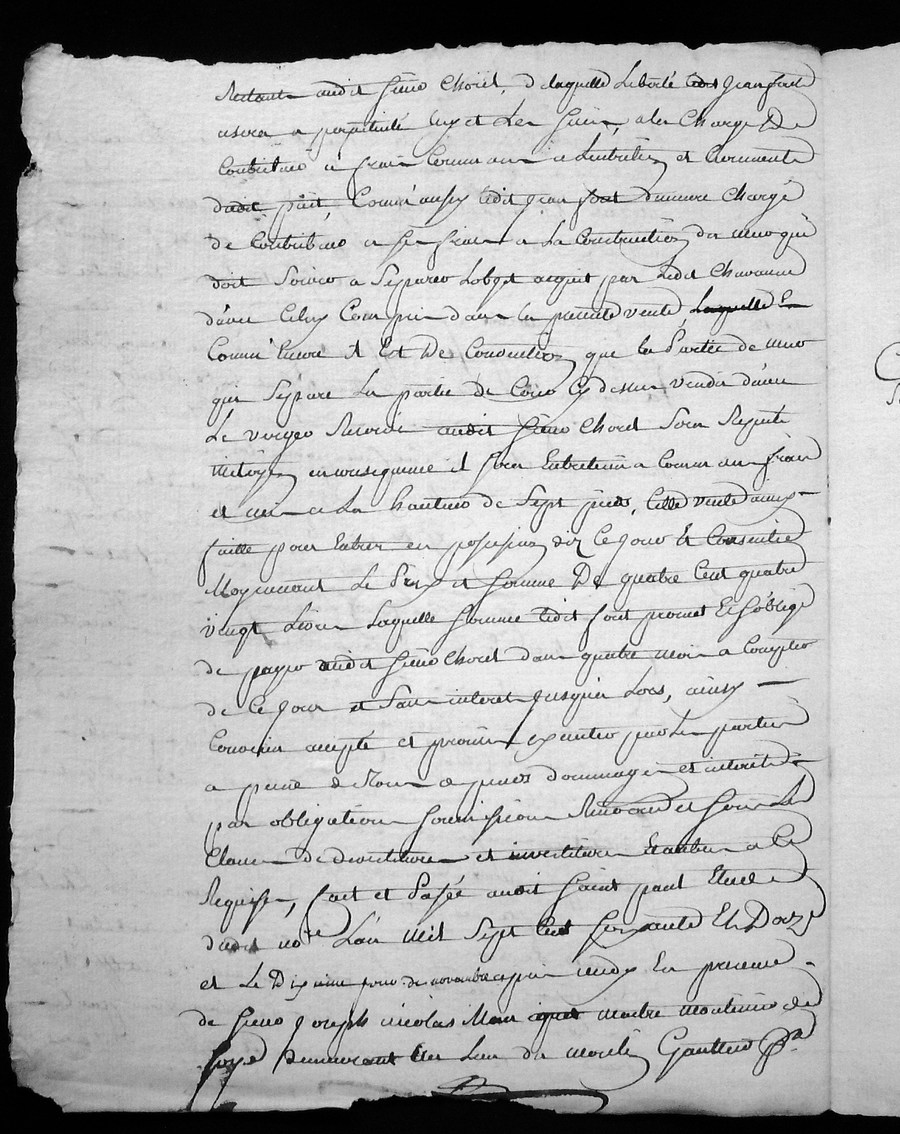 Restante audit Sieur Choret, de laquelle Liberté ledit Jean fort
usera a perpetuité luy et Les Siens, a la Charge De
Contribuer a frais Communs a Lentretien et Curement
dudit puit, Comm' aussy ledit Jean fort demeure Chargé
de Contribuer a ses frais a La Construction du mur qui
doit Servir a Separer Lobjet acquit par Ledit Chavanne
d'avec Celuy Compris dans la presente vente, Laquelle En
Comm' Encore Il Est De Convention que la Partie de mur
qui Sepáre La partie de Cour Cy dessus vendue d'avec
Le verger Reservé audit Sieur Choret Sera Reputé
mitoyen en consequence il sera Entretenu a Commun frais
et mis a La hauteur de Sept pieds, Cette vente ainsy
faitte pour Entrer en possession dez Ce jour Et Consentie
Moyennant Le Prix et Somme De quatre Cent quatre
vingt Livres Laquelle Somme ledit fort promet Et s'oblige
de payer audit Sieur Choret dans quatre mois a Compter
de Ce Jour et Sans interet Jusqu'a Lors, ainsy
Convenu accepté et promis executer par Les parties
a peine de Tous depens dommages et interets
par obligations Soumissions Renonce et Sous Les
Clauses De devestiture et investiture Et autres a Ce
Requises, fait et Passé audit Saint paul Etude
dudit nore L'an Mil Sept Cent Soixante Et Douze
et Le Dixieme jour de novembre apres midy En presence
de Sieur Joseph nicolas maitre meunier de
demeurant au Lieu du moulin Gaultier